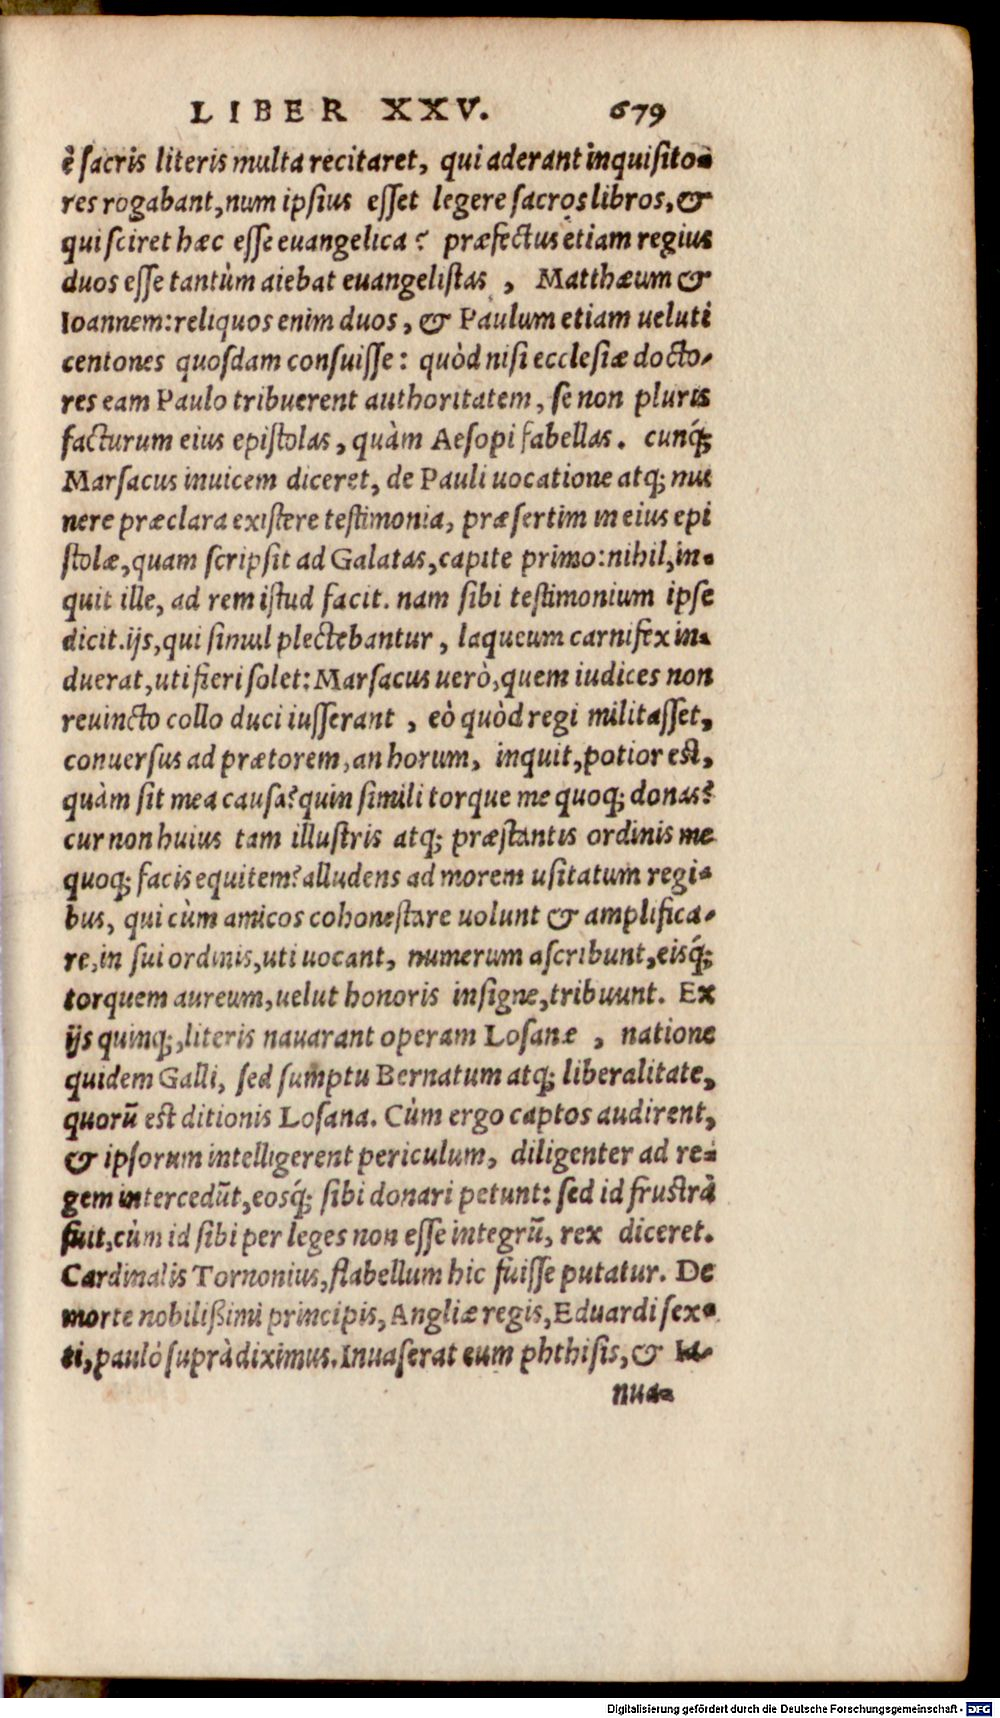 LIBER XXV. 679
è sacris literis multa recitaret, qui aderant inquisito-
res rogabant, num ipsius esset legere sacros libros, &
qui sciret hæc esse euangelica? præfectus etiam regius
duos esse tantùm aiebat euangelistas, Matthæum &
Ioannem: reliquos enim duos, & Paulum etiam ueluti
centones quosdam consuisse: quòd nisi ecclesiæ docto-
res eam Paulo tribuerent authoritatem, se non pluris
facturum eius epistolas, quàm Aesopi fabellas. cunq́;
Marsacus inuicem diceret, de Pauli uocatione atq; mu
nere præclara existere testimonia, præsertim in eius epi
stolæ, quam scripsit ad Galatas, capite primo: nihil, in-
quit ille, ad rem istud facit. nam sibi testimonium ipse
dicit. ijs, qui simul plectebantur, laqueum carnifex in-
duerat, uti fieri solet: Marsacus uerò, quem iudices non
reuincto collo duci iusserant, eò quòd regi militasset,
conuersus ad prætorem, an horum, inquit, potior est,
quàm sit mea causa? quin simili torque me quoq; donas?
cur non huius tam illustris atq; præstantis ordinis me
quoq; facis equitem? alludens ad morem usitatum regi-
bus, qui cùm amicos cohonestare uolunt & amplifica-
re, in sui ordinis, uti uocant, numerum ascribunt, eisq́;
torquem aureum, uelut honoris insigne, tribuunt. Ex
ijs quinq;, literis nauarant operam Losanæ, natione
quidem Galli, sed sumptu Bernatum atq; liberalitate,
quorū est ditionis Losana. Cùm ergo captos audirent,
& ipsorum intelligerent periculum, diligenter ad re-
gem intercedūt, eosq́; sibi donari petunt: sed id frustrà
fuit, cùm id sibi per leges non esse integrū, rex diceret.
Cardinalis Tornonius, flabellum hic fuisse putatur. De
morte nobilißimi principis, Angliæ regis, Eduardi sex-
ti, pauló suprà diximus. Inuaserat eum phthisis, & Ia-
nua-
Digitalisierung gefördert durch die Deutsche Forschungsgemeinschaft - DFG